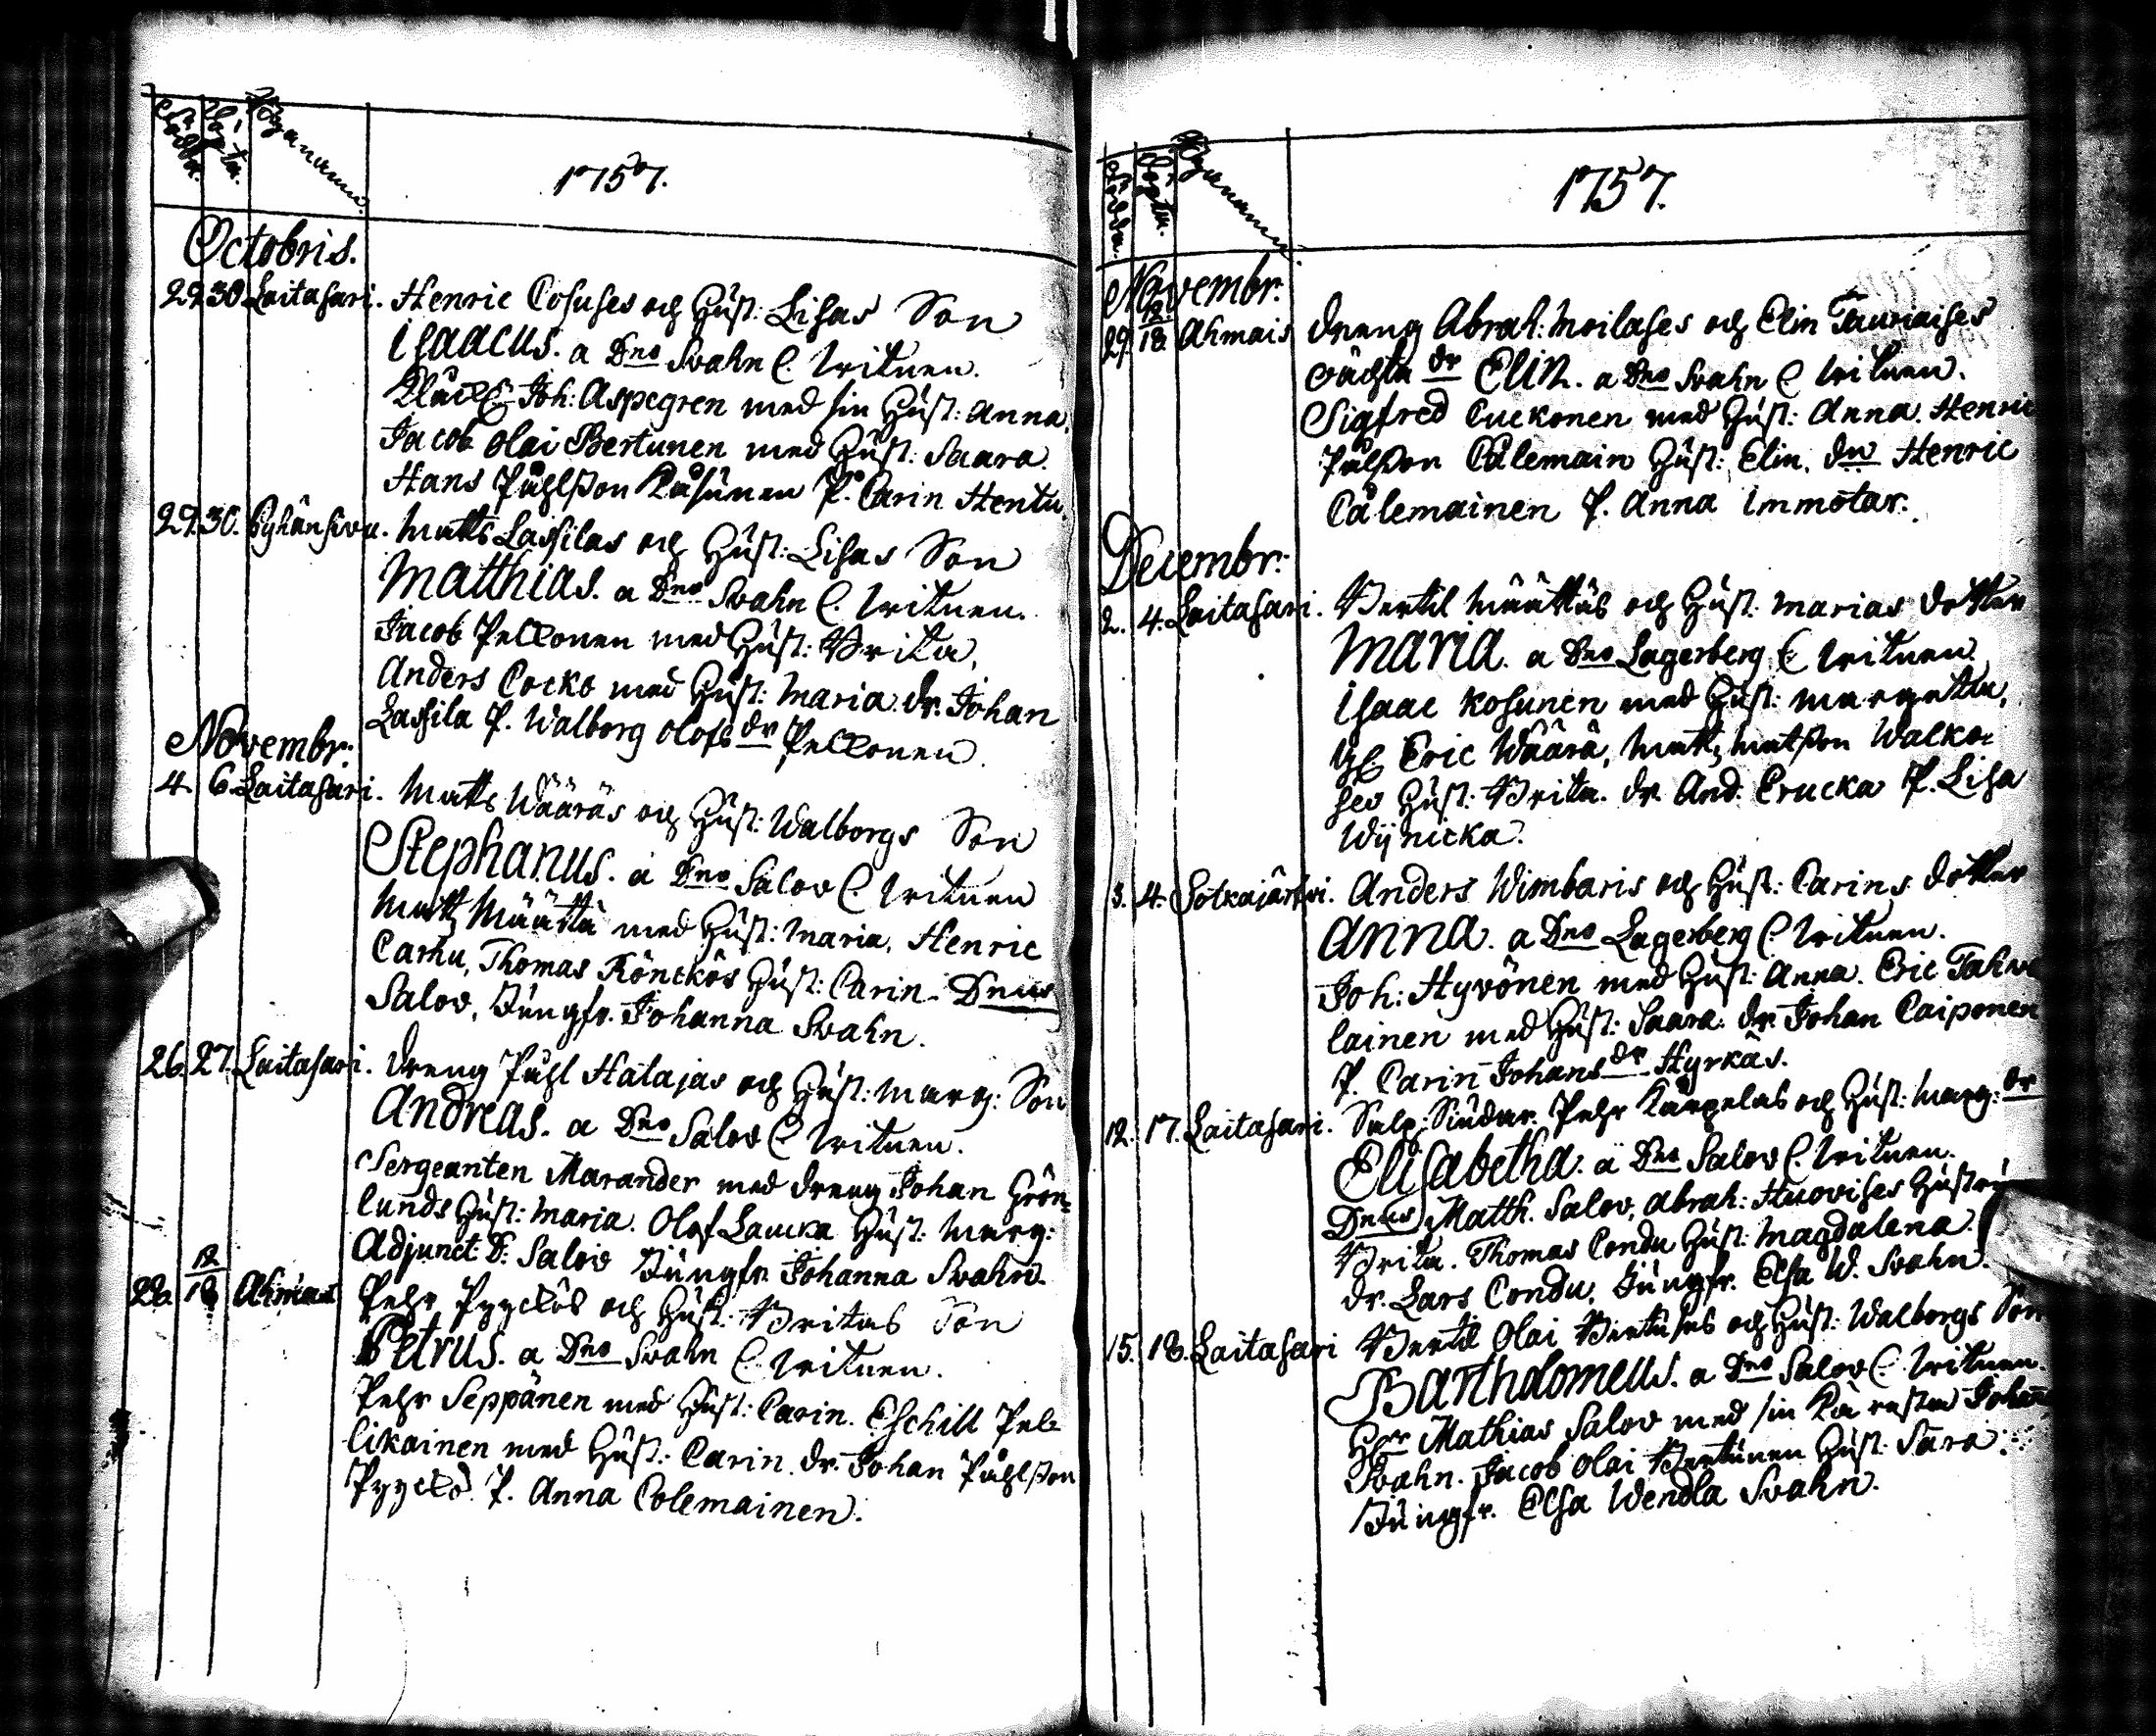 Födda. Döpta. Byanamn.
1757.
Octobris.
29. 30. Laitasari. Henric Cosuses och Hust: Lisas Son
Isaacus. a Dno Svahn C. Writnen.
Joh: Aspegren med sin Hust: Anna,
Jacob Olai Bertunen med Hust: Saara.
Hans Påhlsson Kåsunen P. Carin Hentu
29. 30. Pyhänsivu. Matts Lassilas och Hust: Lisas Son
Matthias. a Dno Svahn C. Writnen.
Jacob Pelkonen med Hust: Brita,
Anders Cocko med Hust: Maria. dr. Johan
Lassila P. Walborg Olofs dr Pelkonen.
Novembr:
4. 6. Laitasari. Matts Wääräs och Hust: Walborgs Son
Stephanus. a Dno Salov C. Writnen
Matts Määttä med Hust: Maria, Henric
Carhu, Thomas Rönckös Hust: Carin. Dnus
Salov, Jungfr. Johanna Svahn.
26. 27. Laitasari. Dreng Påhl Halajas och Hust: Marg: Son
Andreas. a Dno Salov C. Writnen.
Sergeanten Marander med dreng Johan Grön-
lunds Hust: Maria. Olof Laucka Hust: Marg:
Adjunct: D: Salov Jungfr. Johanna Svahn.
28. 12/18 Ahmas Pehr Pyyckös och Hust: Britas Son
Petrus. a Dno Svahn C. Writnen.
Pehr Seppänen med Hust: Carin. Eschill Pel-
likainen med Hust: Carin. dr. Johan Påhlsson
Pyyckö. P. Anna Colemainen.
Födda. Döpta. Byanamn.
1757.
Novembr:
29. 12/18. Ahmais Dreng Abrah: Moilases och Elin Tauriaises
oächta dr Elin. a Dno Svahn C Writnen.
Sigfred Cuckonen med Hust: Anna. Henric
Pålsson Cålemain Hust: Elin. dr Henric
Cålemainen P. Anna Immotar.
Decembr:
2. 4. Laitasari. Bertil Määttäs och Hust: Marias dotter
Maria. a Dno Lagerberg C Writnen
Isaac Kosunen med Hust: Margeta,
Eric Wäärä, Matts Matsson Walko-
ses Hust: Brita. dr. And: Crucka P. Lisa
Wijnicka.
3. 4. Sotkajärfvi. Anders Wimbaris och Hust: Carins dotter
Anna. a Dno Lagerberg C. Writnen.
Joh: Hyvönen med Hust: Anna. Eric Tahva
lainen med Hust: Saara. dr. Johan Caiponen
P. Carin Johans dr Hyrkäs.
12. 17. Laitasari. Pehr Karpelas och Hust: Marg: dr
Elisabetha. a Dno Salov C. Writnen.
Dnus Matth. Salov, Abrah: Huovises Hustru
Brita. Thomas Condu Hust: Magdalena.
dr. Lars Condu, Jungfr. Elsa W. Svahn.
15. 18. Laitasari Bertil Olai Bertuses och Hust: Walborgs Son
Bartholomeus. a Dno Salov C. Writnen.
Herr Mathias Salov med sin Kiäresta Johann
Svahn. Jacob Olai Bertunen Hust: Sara.
Jungfr. Elsa Wendla Svahn.